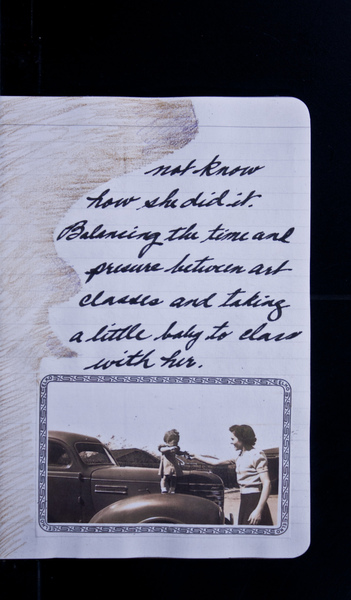 not know
how she did it.
Balancing the time and
presure between art
classes and taking
a little baby to class
with her.